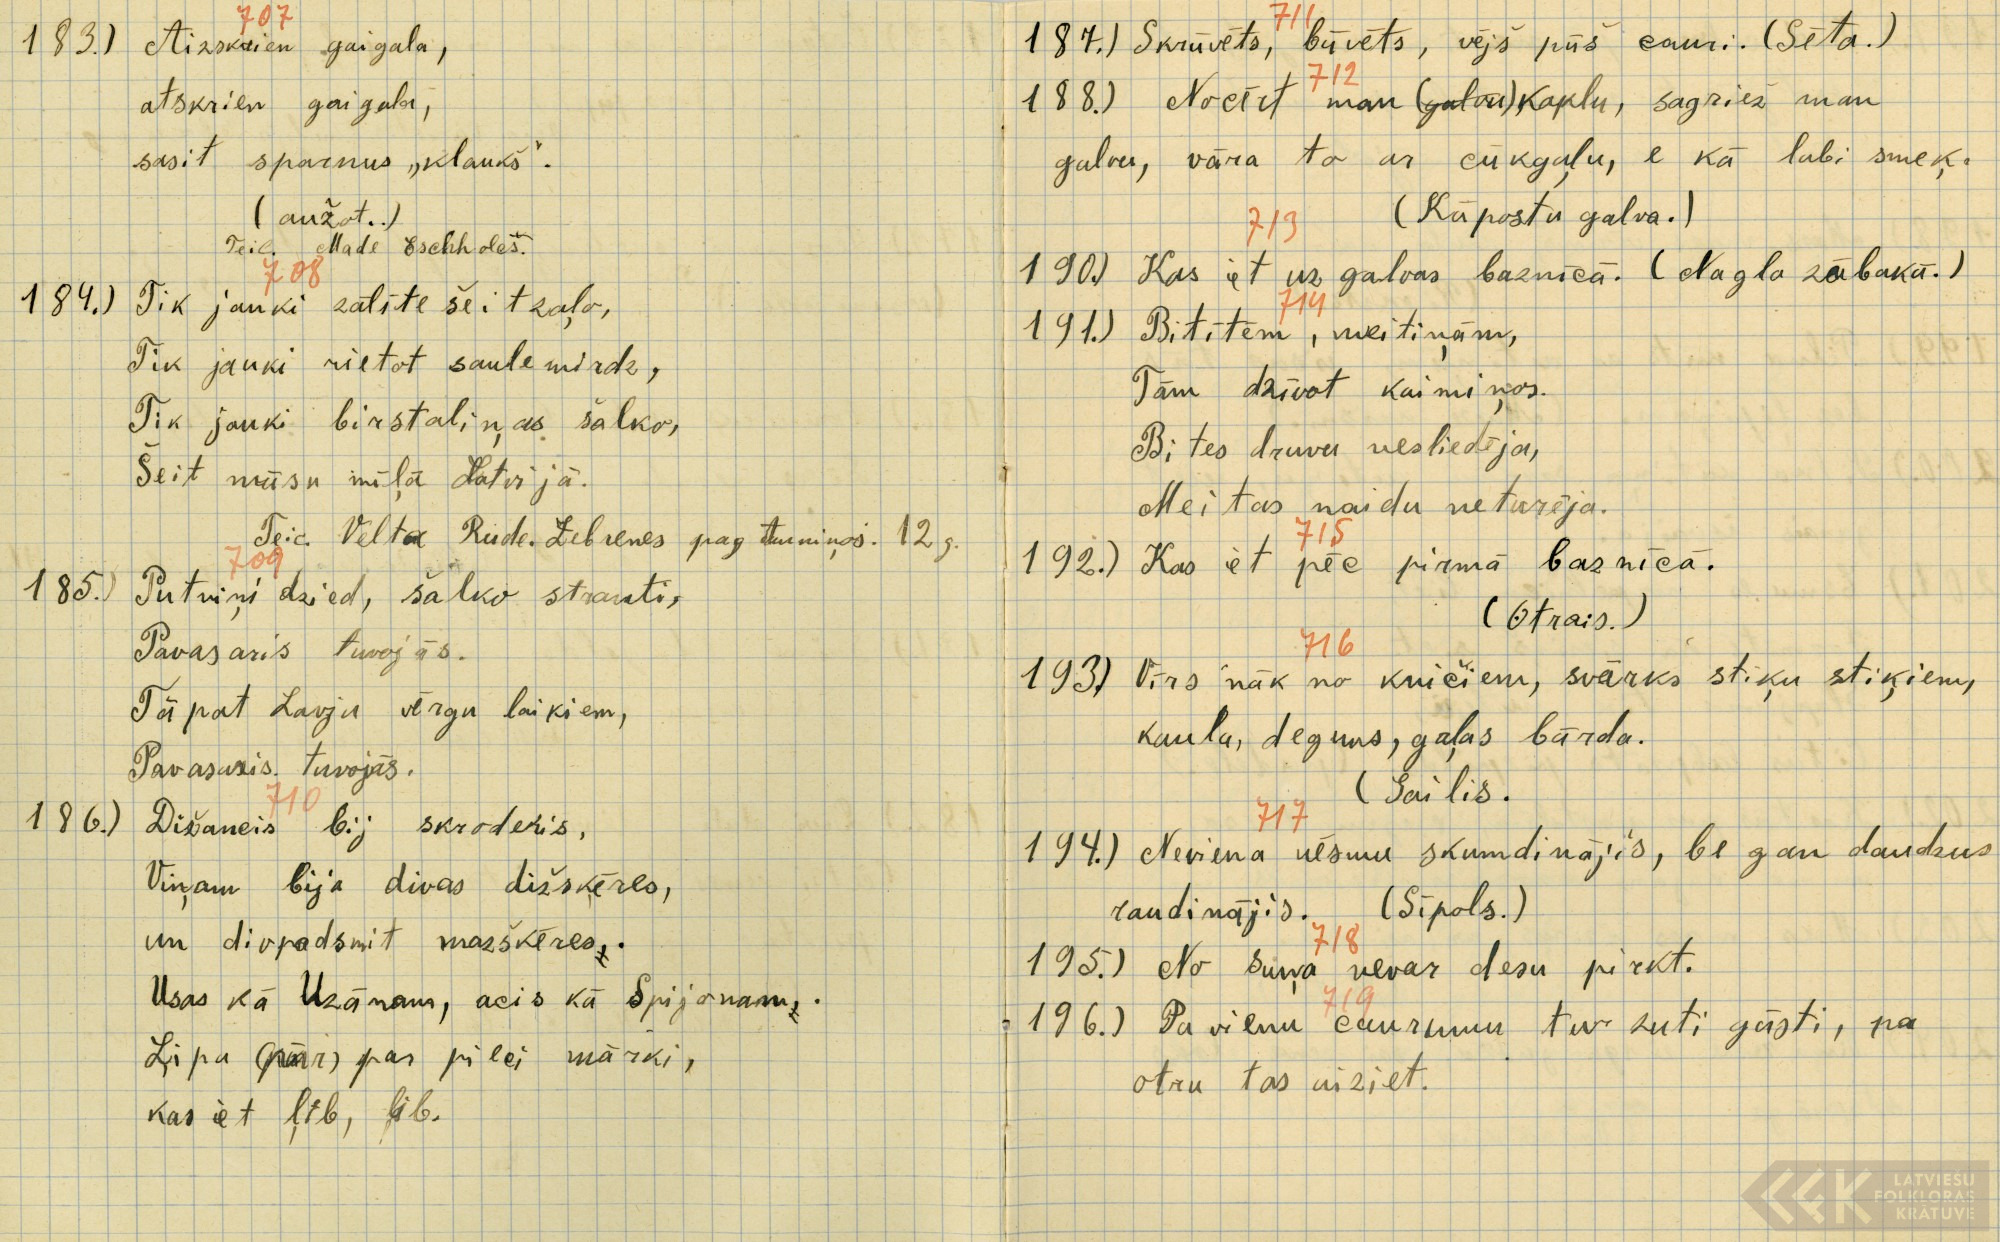 707
183.) Aizskrien gaigala,
atskrien gaigala,
sasit sparnus „klaukš".
(aužot..)
Teic. Made Eschholcš.
708
184.) Tik jauki zālīte šeit zaļo,
Tik jauki rietot saule mirdz,
Tik jauki birstaliņas šalko,
Šeit mūsu mīļā Latvijā.
Teic. Velta Rude. Zebrenes pag 12 g.
709
185.) Putniņi dzied, šalko strauti,
Pavasaris tuvojās.
Tāpat Lavju vērgu laikiem,
Pavasaris. tuvojās.
710
186.) Dižancis bij skroderis,
Viņam bija divas dižšķēres,
un divpadsmit mazšķēres.
Usas kā Uzānam, acis kā Spijonam.
Ļipa (pār) par pilci mārki,
kas iet ļib, ļib.
711
187.) Skrūvēts, būvēts, vējš pūš cauri. (Sēta.)
712
188.) Nocērt man (galvu) kaklu, sagriež man
galvu, vāra to ar cūkgaļu, e kā labi smeķ.
(Kāpostu galva.)
713
190.) Kas iet uz galvas baznīcā. (Nagla zābakā.)
714
191.) Bitītēm, meitiņām,
Tām dzīvot kaimiņos.
Bites druvu nesliedēja,
Meitas naidu neturēja.
715
192.) Kas iet pēc pirmā baznīcā.
(Otrais.)
716
193.) Vīrs nāk no kničiem, svārks stiķu stiķiem,
kaula, deguns, gaļas bārda.
(Gailis.
717
194.) Neviena nēsmu skumdinājis, be gan daudzus
raudinājis. (Sīpols.)
718
195.) No suņa nevar desu pirkt.
719
196.) Pa vienu caurumu tur zuti gūsti, pa
otru tas aiziet.
LATVIEŠU
FOLKLORAS
KRĀTUVE